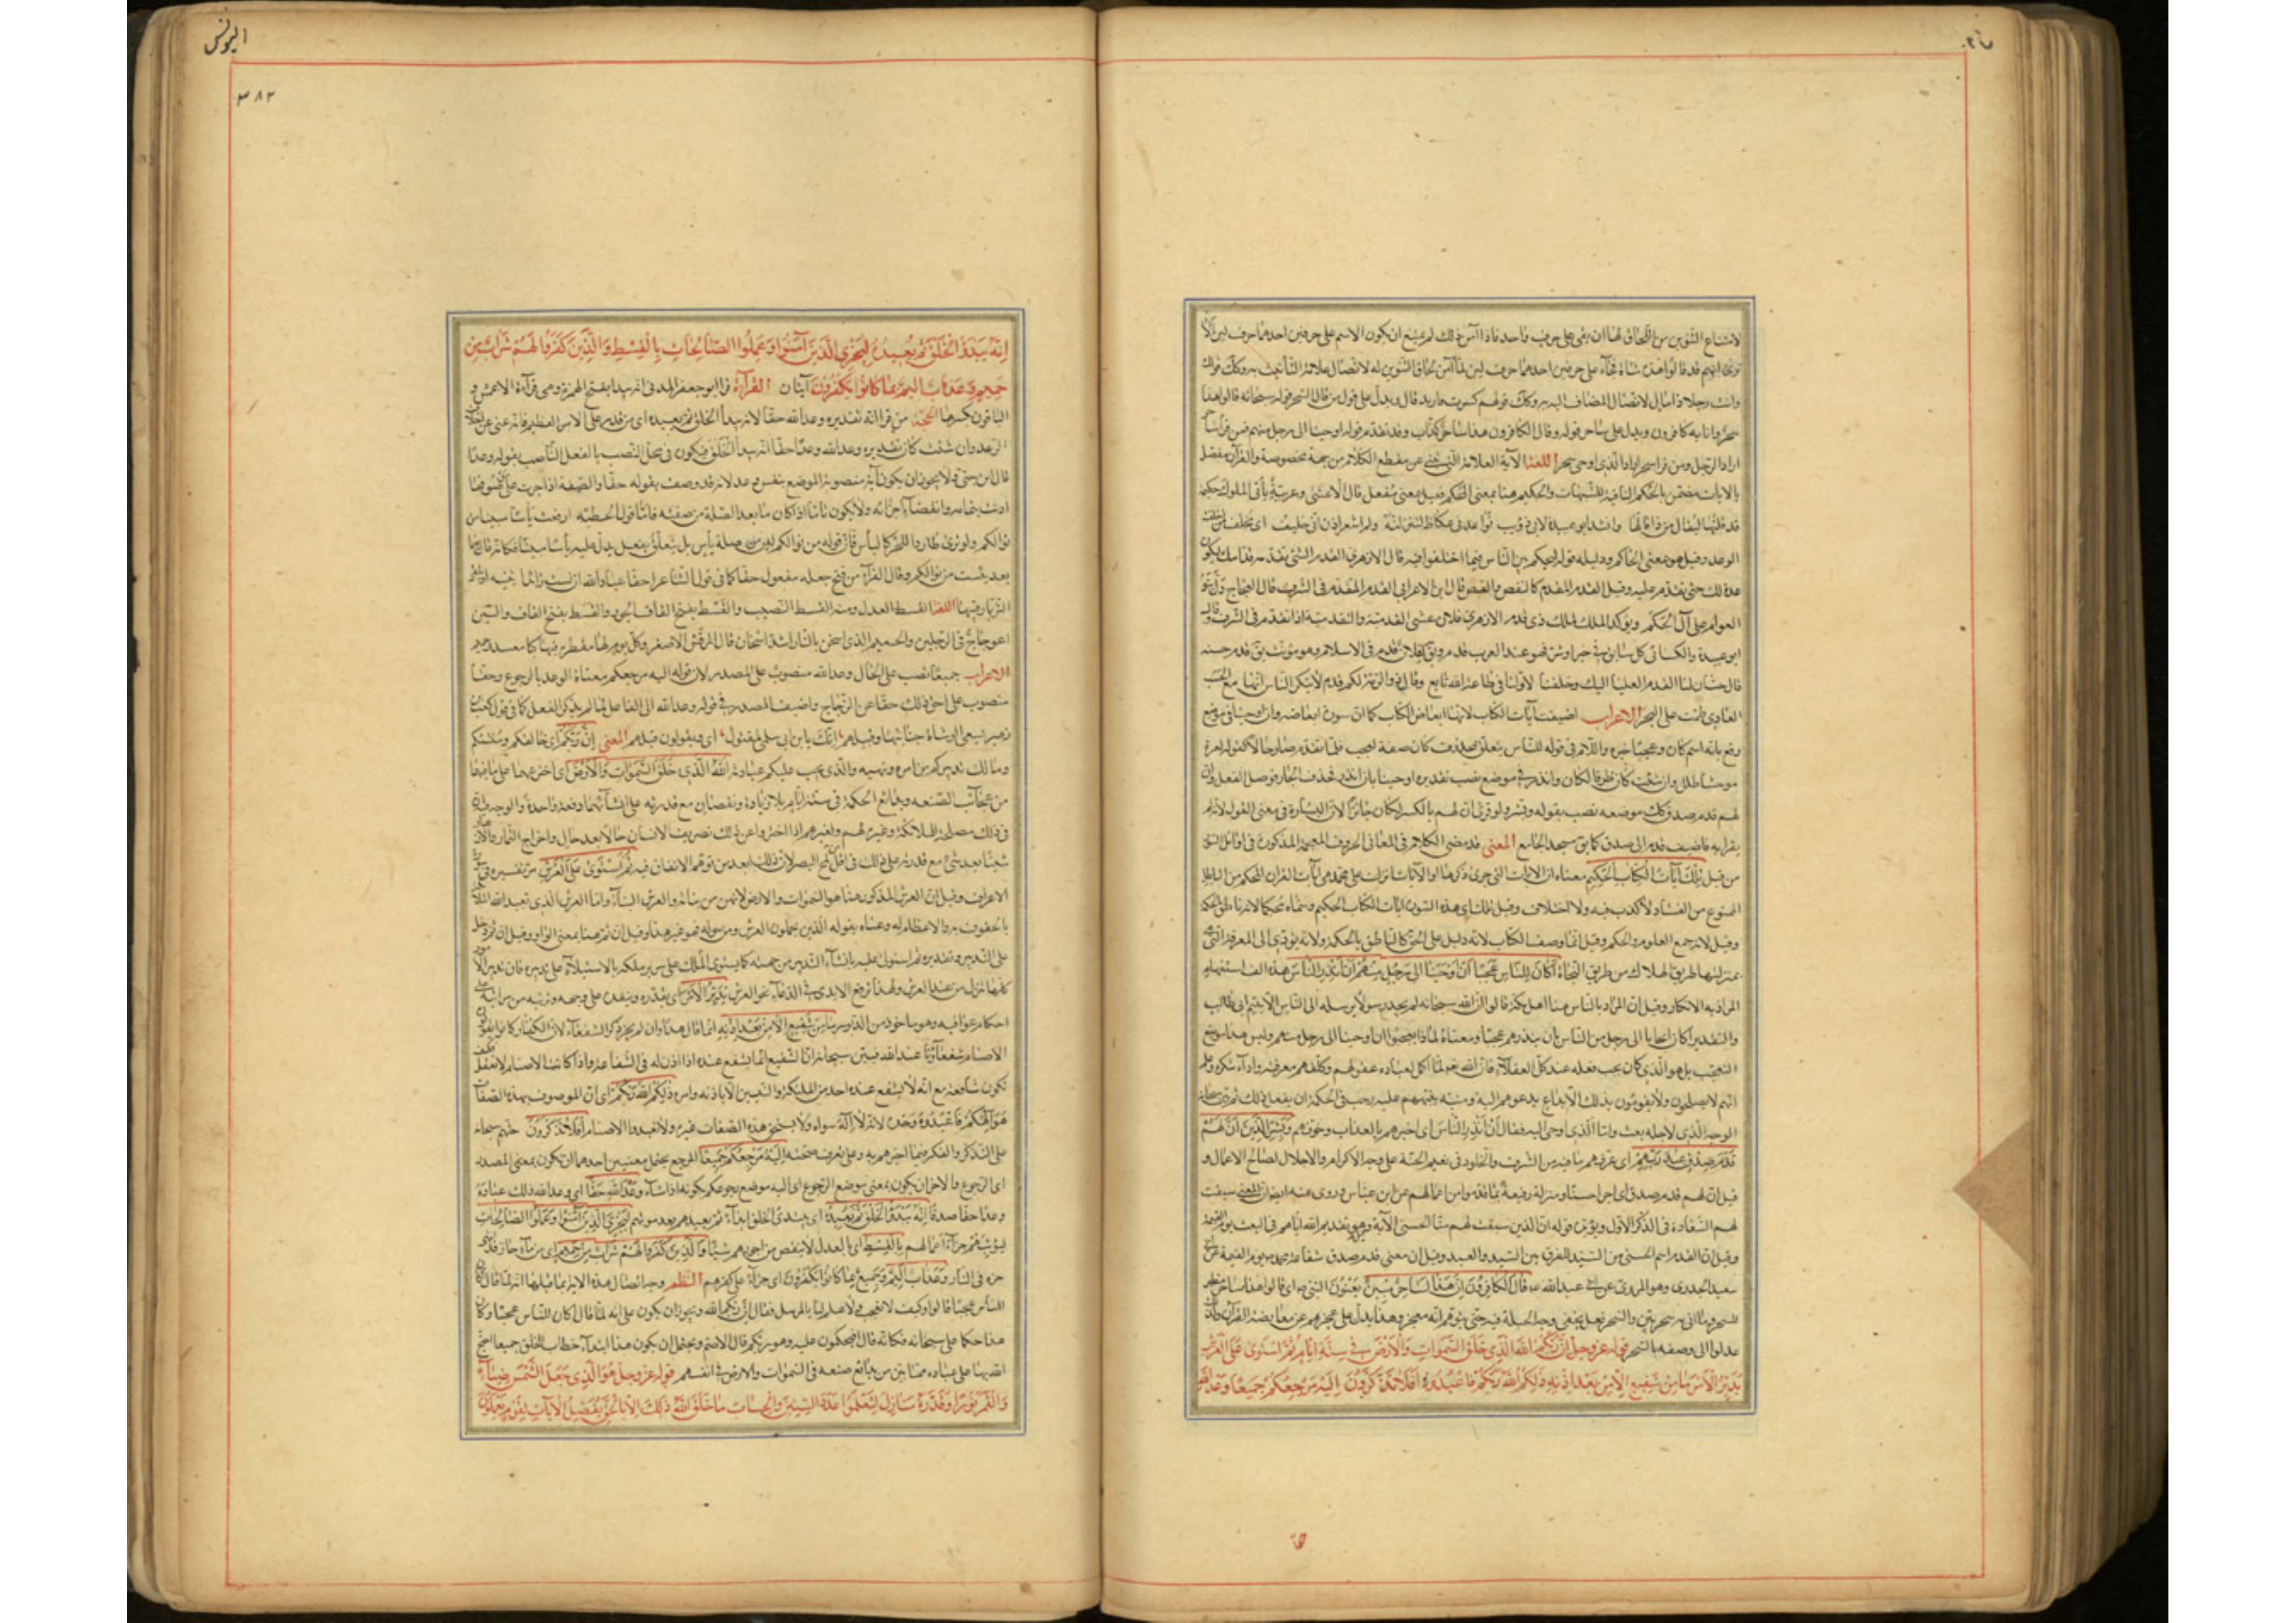 لامتناع التنوين من اللحاق لها ان يبقى على حرف واحد فاذا امن ذلك لم يمتنع ان يكون الاسم على حرفين احدهما حرف لين الا
ترى انهم قد قالوا هذه شاة فجاء على حرفين احدهما حرف لين لما امن لحاق التنوين له لاتصال علامة التأنيث به وكك قولك
وانت رجلا ذا مال لاتصال المضاف اليه به وكك قولهم كسرت فا زيد قال ويدل على قول من قال لسحر قوله سبحانه قالوا هذا
سحر وانا به كافرون ويدل على ساحر قوله وقال الكافرون هذا ساحر كذاب وقد تقدم قوله اوحينا الى رجل منهم فمن قرأ ساحر
اراد الرجل ومن قرأ سحر اراد الذى اوحى سحر اللغة الآية العلامة التى تنبئ عن مقطع الكلام من جهة مخصوصة والقرآن مفصل
بالايات مضمن بالحكم النافية للشبهات والحكيم هنا بمعنى المحكم فعيل بمعنى مفعل قال الاعشى وغريبة يأتى الملوك حكيمة
قد قلتها ليقال من ذا قالها وانشد ابو عبيدة لابى ذؤيب
الوعد وقيل هو بمعنى الحاكم ودليله قوله ليحكم بين الناس فيما اختلفوا فيه قال الازهرى القدم الشئ تقدمه قدامك ليكون
عدة لك حتى تقدم عليه وقيل القدم المقدم كالنفض والقبض قال ابن الاعرابى القدم المتقدم فى الشرف قال العجاج
العوام على آل الحكم وتوكد الملك لملك ذى قدم الازهرى فلان يمشى القدمية والتقدمية اذا تقدم فى الشرف وقال
ابو عبيدة والكسائى كل سابق فى خير او شر فهو عند العرب قدم ويق لفلان قدم فى الاسلام وهو مؤنث يق قدم حسنة
قال حسان لنا القدم العليا اليك وخلفنا لاولنا فى طاعة الله تابع وقال ذو الرمة لكم قدم لا ينكر الناس انها مع الحسب
العادى طمت على البحر الاعراب اضيفت آيات الكتاب لانها ابعاض الكتاب كما ان سورة ابعاضه وان اوحينا فى موضع
رفع بانه اسم كان وعجبا خبره واللام فى قوله للناس يتعلق بمحذوف كان صفة لعجب فلما تقدم صار حالا كقوله لمية
موحشا طلل وان شئت كان ظرفا لكان وان انذر فى موضع نصب تقديره اوحينا بان انذر فحذف الجار فوصل الفعل وان
لهم قدم صدق كك موضعه نصب بقوله وبشر ولو قرئ ان لهم بالكسر لكان جائزا لان البشارة فى معنى القول لانه لم
يقرأ به فاضيف قدم الى صدق كما يق مسجد الجامع المعنى قد مضى الكلام فى المعانى الحروف المعجمة المذكورة فى اوائل السور
من قبل تلك آيات الكتاب الحكيم معناه ان الايات التى جرى ذكرها او الآيات نزلت على محمد هى آيات القران المحكم من الباطل
الممنوع من الفساد لا كذب فيه ولا اختلاف وقيل تلك اى هذه السورة ايات الكتاب الحكيم وسماه محكما لانه ناطق بالحكمة
وقيل لانه جمع العلوم والحكم وقيل انما وصف الكتاب لانه دليل على الحق كالناطق بالحكمة ولانه يؤدى الى المعرفة التى
يميز بها طريق الهلاك من طريق النجاة أكان للناس عجبا ان اوحينا الى رجل منهم ان انذر الناس هذه الف استفهام
المراد به الانكار وقيل ان المراد بالناس هنا اهل مكة قالوا ان الله سبحانه لم يجد رسولا يرسله الى الناس الا يتيم ابى طالب
والتقدير أكان ايحاءنا الى رجل من الناس بان ينذرهم عجبا ومعناه لماذا تعجبوا ان اوحينا الى رجل منهم وليس هذا موضع
التعجب بل هو الذى كان يجب فعله عند كل العقلاء فان الله تع لما اكمل لعباده عقولهم وكلفهم معرفته واداء شكره وعلم
انهم لا يصلحون ولا يقومون بذلك الا بداع يدعوهم اليه ومنبه ينبههم عليه وجب فى الحكمة ان يفعل ذلك ثم بين سبحانه
الوجه الذى لاجله بعث وما الذى اوحى اليه فقال ان انذر الناس اى اخبرهم بالعذاب وخوفهم وبشر الذين آمنوا ان لهم
قدم صدق عند ربهم اى عرفهم ما فيه من الشرف والخلود فى نعيم الجنة على وجه الاكرام والاجلال لصالح الاعمال و
قيل ان لهم قدم صدق اى اجرا حسنا ومنزلة رفيعة بما قدموا من اعمالهم عن ابن عباس وروى عنه ايضا ان المعنى سبقت
لهم السعادة فى الذكر الاول ويؤيده قوله ان الذين سبقت لهم منا الحسنى الآية وهو تقديم الله اياهم فى البعث يوم القيمة
وقيل ان القدم اسم الحسنى من السيد للفرق بين السيد والعبد وقيل ان معنى قدم صدق شفاعة محمد يوم القيمة عن ابى
سعيد الخدرى وهو المروى عن ابى عبد الله ع قال الكافرون ان هذا لساحر مبين يعنون النبى ص اى قالوا هذا ساحر مظهر
للسحر وما اتى به سحر بين والسحر فعل يخفى وجه الحيلة فيه حتى يتوهم انه معجز وهذا يدل على عجزهم عن معارضة القرآن ولذلك
عدلوا الى وصفه بالسحر قوله عز وجل ان ربكم الله الذى خلق السموات والارض فى ستة ايام ثم استوى على العرش
يدبر الامر ما من شفيع الا من بعد اذنه ذلكم الله ربكم فاعبدوه افلا تذكرون اليه مرجعكم جميعا وعد الله
اليونس
٣٨٢
انه يبدؤ الخلق ثم يعيده ليجزى الذين آمنوا وعملوا الصالحات بالقسط والذين كفروا لهم شراب من
حميم وعذاب اليم بما كانوا يكفرون آيتان القراءة قرأ ابو جعفر المدنى انه يبدأ بفتح الهمزة وهى قراءة الاعمش و
الباقون بكسرها الحجة من قرأ انه تقديره وعد الله حقا لانه يبدأ الخلق ثم يعيده اى من قدر على الامر العظيم فانه غنى عن اخلاف
الوعد وان شئت كان تقديره وعد الله وعدا حقا انه يبدأ الخلق فيكون فى محل النصب بالفعل الناصب بقوله وعدا
قال ابن جنى ولا يجوز ان يكون انه منصوبة الموضع بنفس وعد لانه قد وصف بقوله حقا والصفة اذا جرت على موصوفها
اذنت بتمامه وانقضاء اجزائه ولا يكون ثانيا اذا كان ما بعد الصلة من صفته فاما قول الحطيئة ازمعت يأسا مبينا من
نوالكم ولن ترى طاردا للحر كالياس فان قوله من نوالكم ليس من صلة يأس بل يتعلق بفعل يدل عليه يأسا مبينا فكانه قال
بعد يئست من نوالكم وقال الفراء من فتح جعله مفعول حقا كما فى قول الشاعر احقا عباد الله ان لست زائرا بثينة او يلقى
الثريا رقيبها اللغة القسط العدل ومنه القسط النصيب والقسط بفتح القاف الجور والقسط بفتح القاف والسين
اعوجاج فى الرجلين والحميم الذى اسخن بالنار اشد اسخان قال المرقش الاصغر وكل يوم لها مقطرة فيها كباء معد وحميم
الاعراب جميعا نصب على الحال وعد الله منصوب على المصدر لان قوله اليه مرجعكم معناه الوعد بالرجوع وحقا
منصوب على احق ذلك حقا عن الزجاج واضيف المصدر فى قوله وعد الله الى الفاعل لما لم يذكر الفعل كما فى قول كعب بن
زهير يسعى الوشاة جنابيها وقيلهم انك يا ابن ابى سلمى لمقتول اى ويقولون قيلهم المعنى ان ربكم اى خالقكم ومنشئكم
ومالك تدبيركم من امره ونهيه والذى يجب عليكم عبادته الله الذى خلق السموات والارض اى اخترعهما على ما فيهما
من عجائب الصنعة وبدائع الحكمة فى ستة ايام بلا زيادة ونقصان مع قدرته على انشائهما دفعة واحدة والوجه
فى ذلك مصلحة للملائكة وعبرة لهم ولغيرهم اذا اخبروا عن ذلك تصريف الانسان حالا بعد حال واخراج الثمار والازهار
شيئا بعد شئ مع قدرته على ذلك فى اقل من لمح البصر لان ذلك ابعد من توهم الاتفاق فيه ثم استوى على العرش مر تفسيره فى
الاعراف وقيل ان العرش المذكور هنا هو السموات والارض لانهن من بنائه والعرش البناء واما العرش الذى تعبد الله الملائكة
بالحفوف به والاعظام له وعناه بقوله الذين يحملون العرش ومن حوله فهو غير هذا وقيل ان ثم هنا بمعنى الواو وقيل ان ثم دخل
على التدبير وتقديره ثم استوى عليه بانشاء التدبير من جهته كما يستوى الملك على سرير ملكه بالاستيلاء على تدبيره فان تدبير الامور
كلها ينزل من عند العرش ولهذا ترفع الايدى فى الدعاء نحو العرش يدبر الامر اى يقدره وينفذه على وجهه ومرتبته من مراتبه على
احكام عواقبه وهو مأخوذ من الدبور ما من شفيع الا من بعد اذنه انما قال هذا وان لم يجر ذكر الشفعاء لان الكفار كانوا يقولون
الاصنام شفعاؤنا عند الله فبين سبحانه ان الشفيع انما يشفع عنده اذا اذن له فى الشفاعة واذا كانت الاصنام لا تعقل فكيف
تكون شافعة مع انه لا يشفع عنده احد من الملئكة والنبيين الا باذنه وامره ذلكم الله ربكم اى ان الموصوف بهذه الصفات
هو الهكم فاعبدوه وحده لانه لا اله سواه ولا يستحق هذه الصفات غيره ولا تعبدوا الاصنام افلا تذكرون حثهم سبحانه
على التذكر والفكر فيما اخبرهم به وعلى تعرف صحته اليه مرجعكم جميعا المرجع يحتمل معنيين احدهما ان يكون بمعنى المصدر
اى الرجوع والاخر ان يكون بمعنى موضع الرجوع اى اليه موضع رجوعكم يكونه اذا شاء وعد الله حقا اى وعد الله ذلك عباده
وعدا حقا صدقا انه يبدؤ الخلق ثم يعيده اى يبتدئ الخلق ابتداء ثم يعيدهم بعد موتهم ليجزى الذين آمنوا وعملوا الصالحات
ليؤتيهم جزاء اعمالهم بالقسط اى بالعدل لا ينقص من اجورهم شيئا والذين كفروا لهم شراب من حميم اى من ماء حار قد انتهى
حره فى النار وعذاب اليم وجيع بما كانوا يكفرون اى جزاء على كفرهم النظم وجه اتصال هذه الاية بما قبلها انه لما قال أكان
للناس عجبا قالوا وكيف لا نعجب ولا علم لنا بالمرسل فقال ان ربكم الله ويجوز ان يكون على انه لما قال أكان للناس عجبا وكان
هذا حكما على سبحانه فكانه قال افتحكمون عليه وهو ربكم قال الاصم ويحتمل ان يكون هذا ابتداء خطاب للخلق جميعا احتج
الله بها على عباده مما بين من بدائع صنعه فى السموات والارض فى انفسهم قوله عز وجل هو الذى جعل الشمس ضياء
والقمر نورا وقدره منازل لتعلموا عدد السنين والحساب ما خلق الله ذلك الا بالحق يفصل الآيات لقوم يعلمون